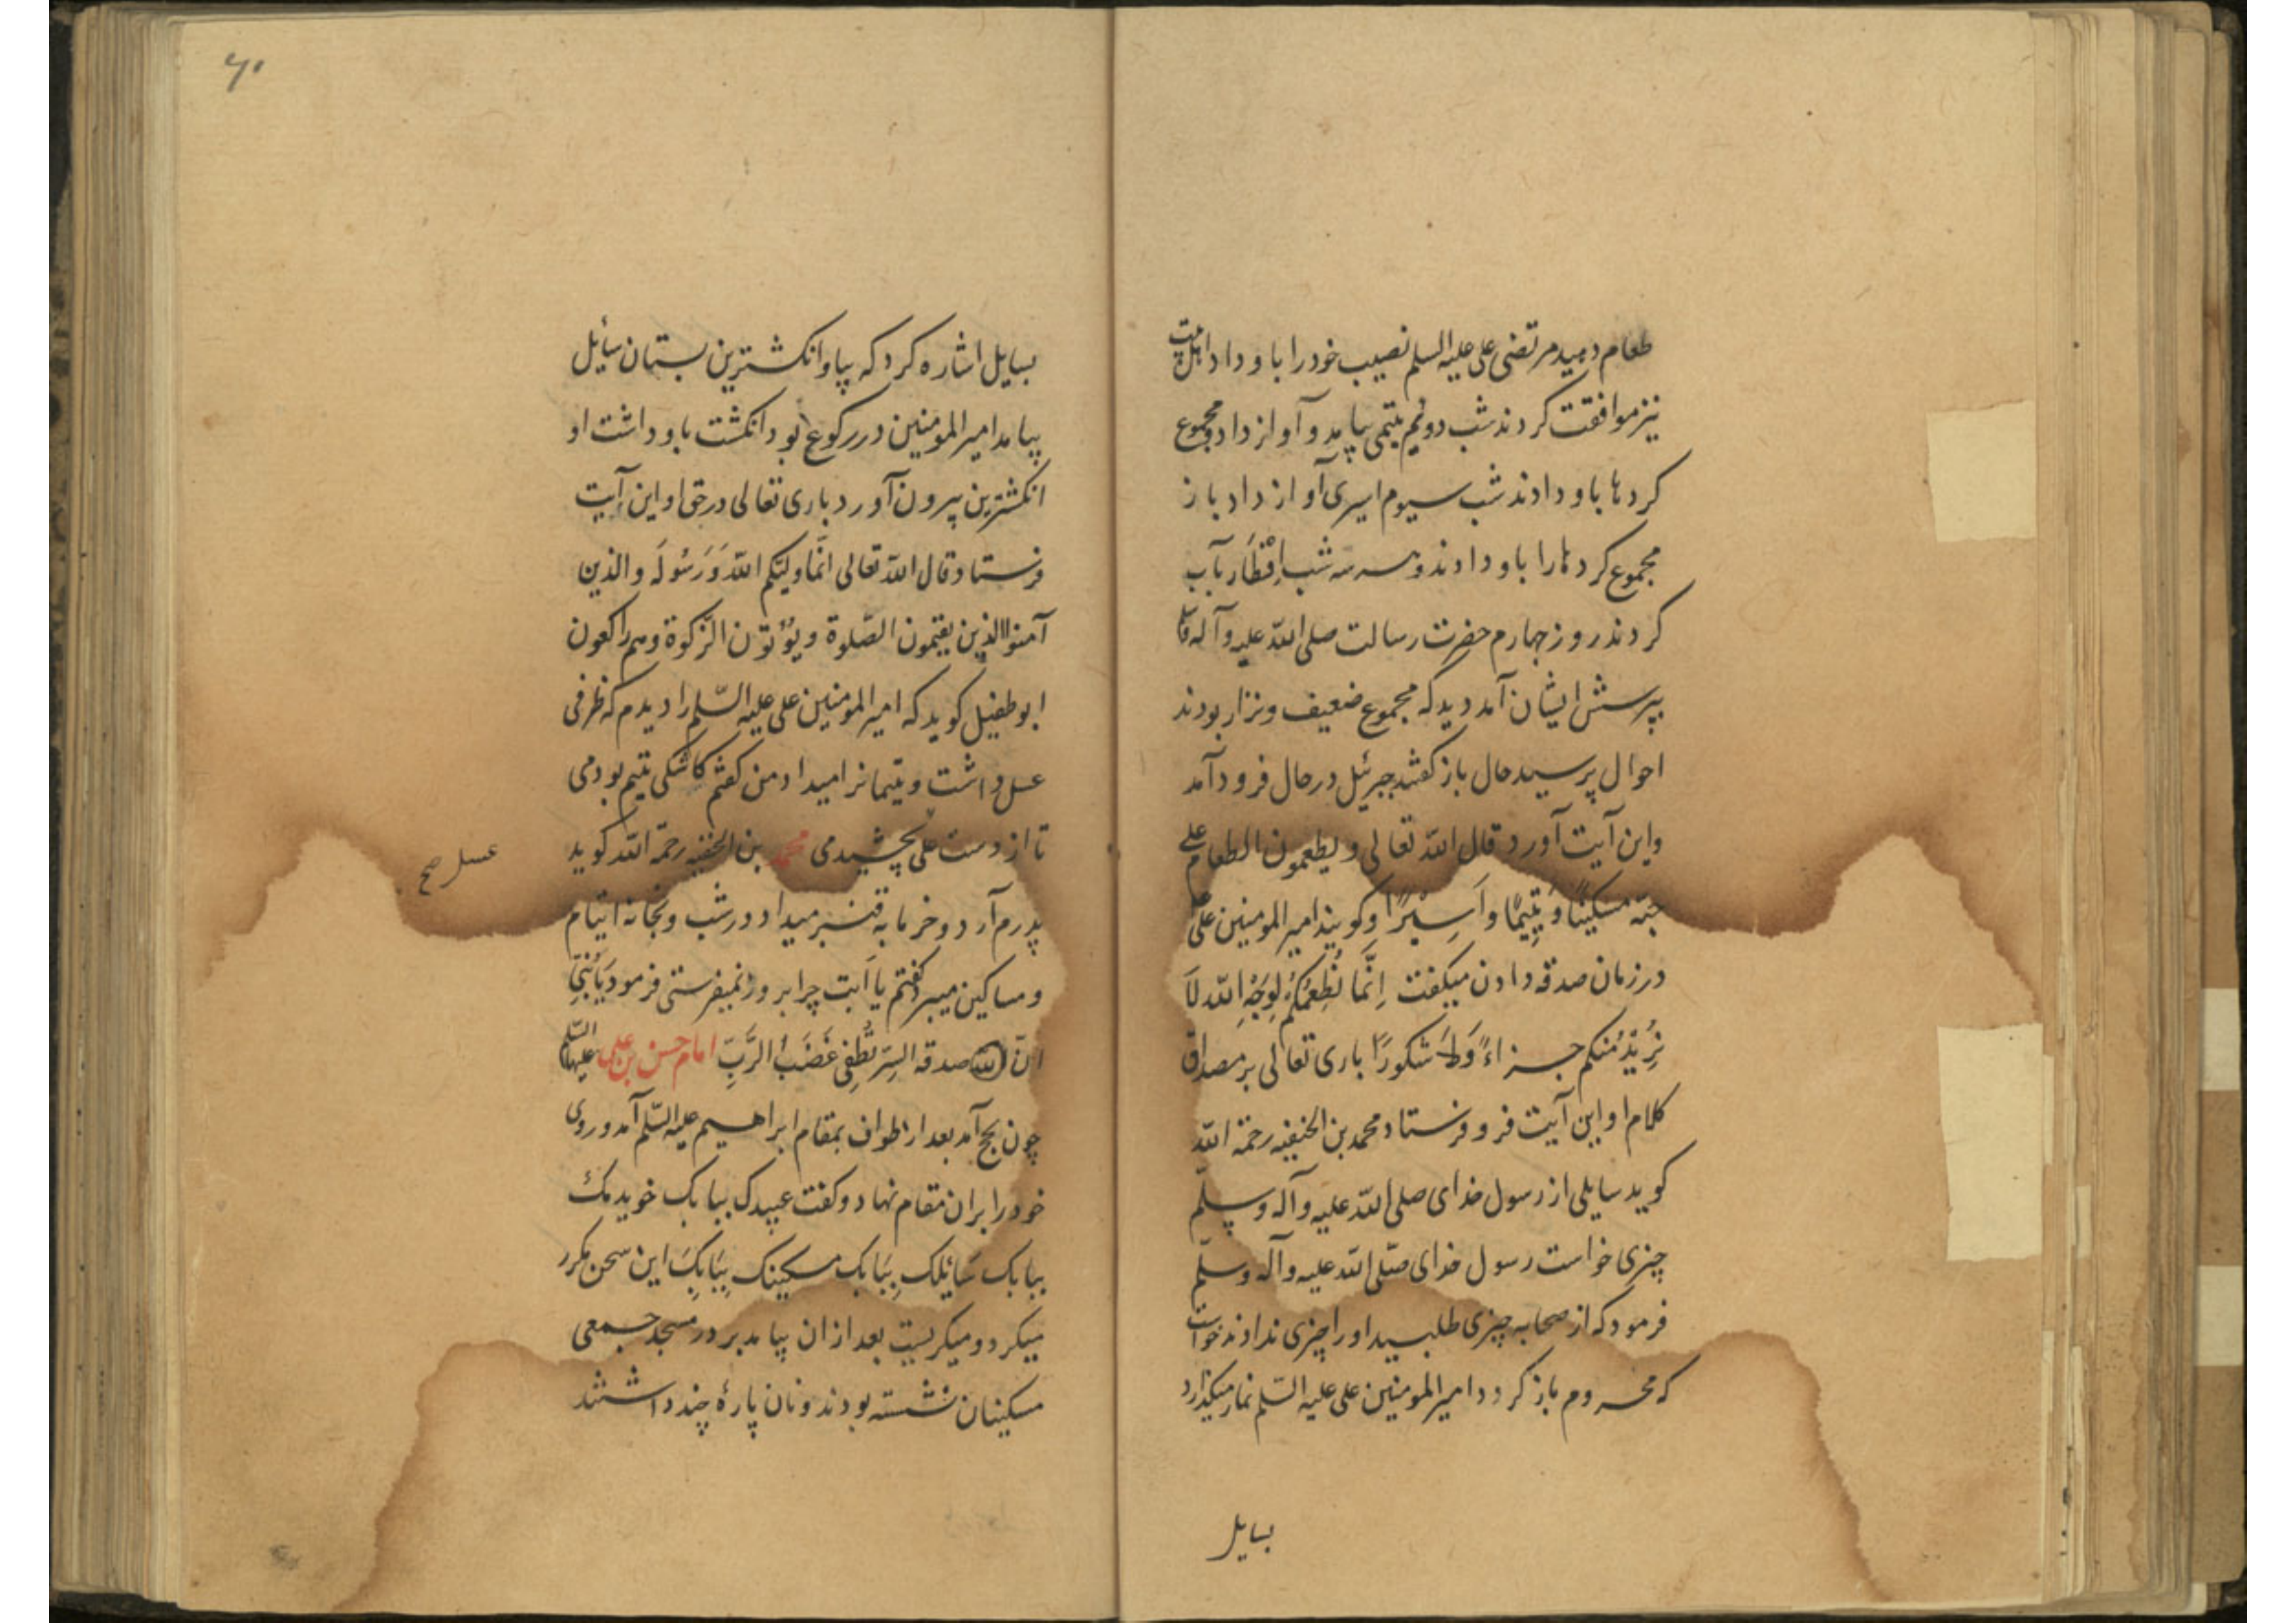 طعام دهید مرتضی علی علیه السلم نصیب خود را باو داد اهل بیت
نیز موافقت کردند شب دوئم یتیمی بیامد و آواز داد و مجموع
کردها باو دادند شب سیوم اسیری آواز داد باز
مجموع کردها را باو دادند و سه شب اِفْطَار بآب
کردند روز چهارم حضرت رسالت صلی الله علیه و آله
بپرسش ایشان آمد دید که مجموع ضعیف و نزار بودند
احوال پرسید حال باز گفتند جبرئیل در حال فرود آمد
و این آیت آورد قال الله تعالی و یطعمون الطعام علی
حبّه مسکینًا وَ یَتِیمًا و اَسِیْرًا و کویند امیر المومنین علی
در زمان صدقه دادن میکفت اِنَّمَا نُطْعِمُکُمْ لِوَجْهِ الله لَا
نُرِیْدُ مِنْکم جزاءً وَلَا شکورًا باری تعالی بر مصداق
کلام او این آیت فرو فرستاد محمد بن الحنفیه رحمة الله
کوید سایلی از رسول خدای صلی الله علیه و آله و سلّم
چیزی خواست رسول خدای صلّی الله علیه و آله و سلّم
فرمود که از صحابه چیزی طلبید او را چیزی ندادند خواست
که محروم باز کردد امیر المومنین علی علیه السّلم نماز میکذارد
بسایل
۶۰
بسایل اشاره کرد که بیا و انکشترین بستان سایٔل
بیامد امیر المومنین در رکوع بود انکشت باو داشت او
انکشترین بیرون آورد باری تعالی در حق او این آیت
فرستاد قال الله تعالی انّما ولیّکم الله وَ رَسُولَه و الذین
آمنوا الذین یقیمون الصّلوة و یؤتون الزّکوة و هم راکعون
ابو طفیل کوید که امیر المومنین علی علیه السّلم را دیدم که ظرفی
عسل داشت و یتیمانرا میداد من کفتم کاشکی یتیم بودمی
تا از دست علی بچشیدمی محمد بن الحنفیه رحمة الله کوید
عسل صح
پدرم آرد و خرما به قنبر میداد در شب و بخانه ایتام
و مساکین میبرد گفتم یا اَبت چرا بروز نمیفرستی فرمود یَابُنَیّ
انّ الله صدقه السِرّ تُطْفِی غَضَبُ الرَّبِّ امام حسن بن علی علیهما السّلم
چون بحج آمد بعد از طواف بمقام ابراهیم علیه السّلم آمد و روی
خود را بران مقام نهاد و کفت عبیدک ببابک خویدمک
ببابک سَایٔلک بِبَابک مسکینک بِبَابِکَ این سخن مکرر
میکرد و میکریست بعد از ان بیامد بر در مسجد جمعی
مسکینان نشسته بودند و نان پارهٔ چند داشتند